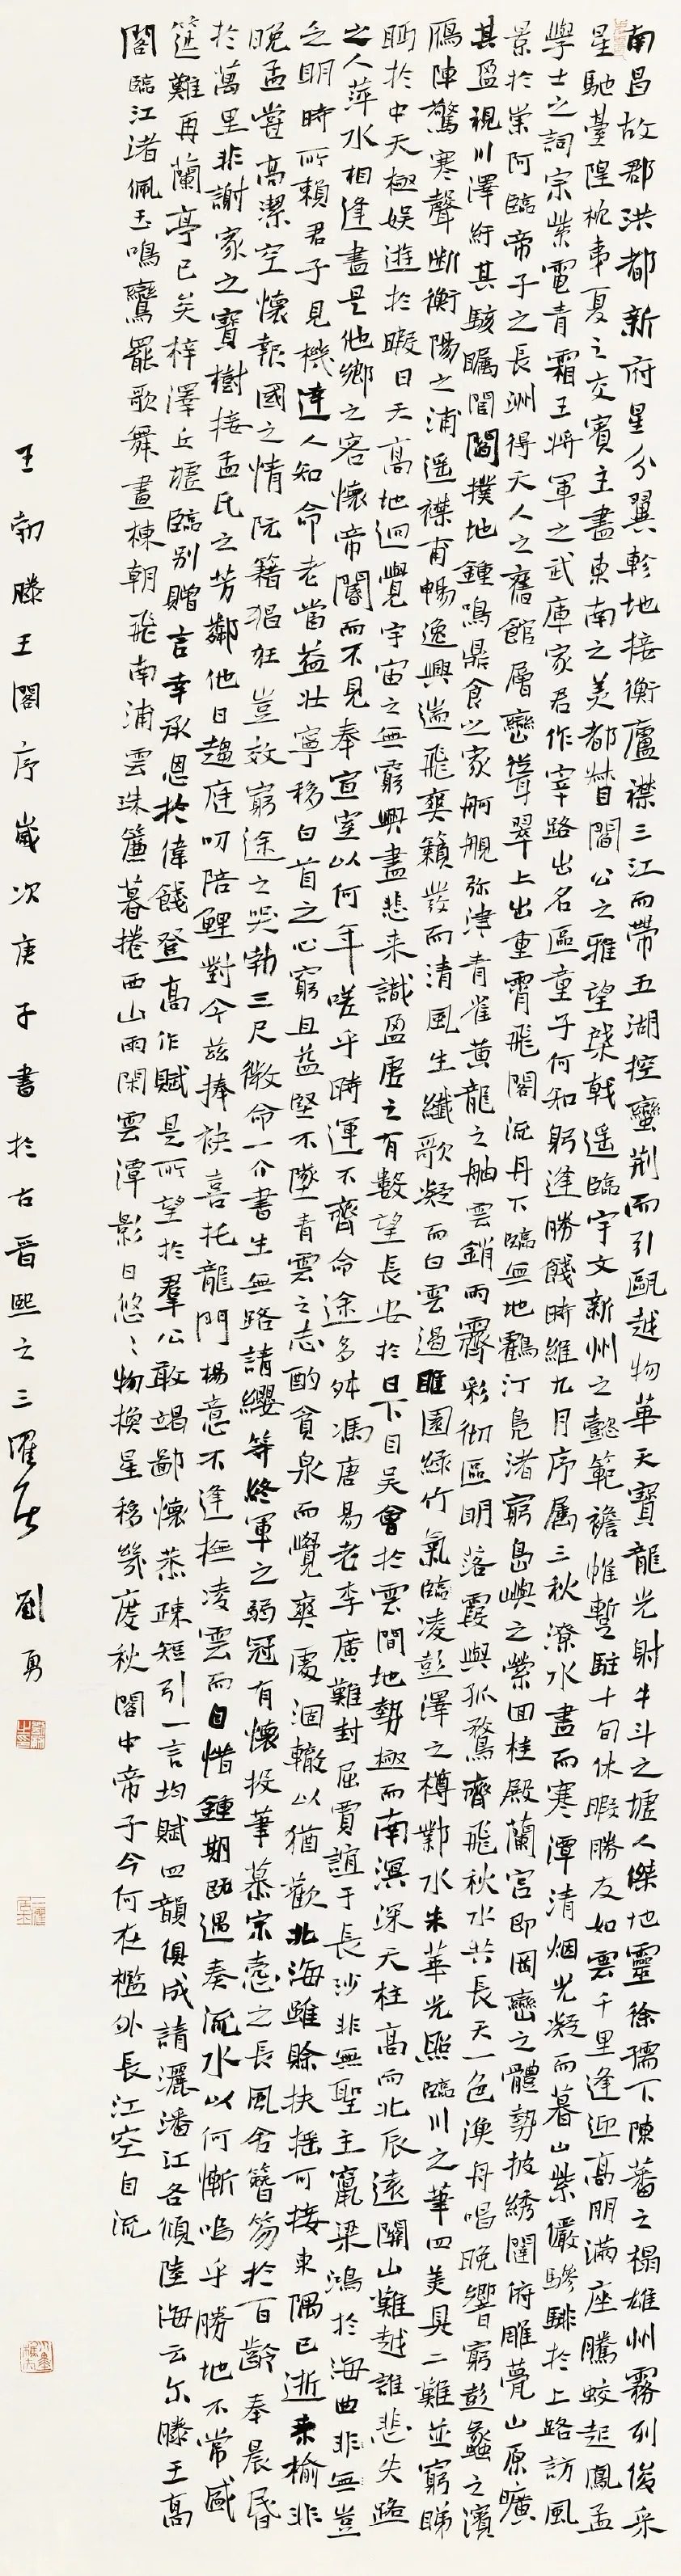 南昌故郡洪都新府星分翼軫地接衡廬襟三江而帶五湖控蠻荆而引甌越物華天寶龍光射牛斗之墟人傑地靈徐孺下陳蕃之榻雄州霧列俊采
星馳臺隍枕夷夏之交賓主盡東南之美都督閻公之雅望棨戟遥臨宇文新州之懿範襜帷暫駐十旬休暇勝友如雲千里逢迎高朋滿座騰蛟起鳳孟
學士之詞宗紫電青霜王將軍之武庫家君作宰路出名區童子何知躬逢勝餞時維九月序属三秋潦水盡而寒潭清烟光凝而暮山紫儼驂騑於上路訪風
景於崇阿臨帝子之長洲得天人之舊館層巒聳翠上出重霄飛閣流丹下臨無地鶴汀鳧渚窮島嶼之縈回桂殿蘭宫即岡巒之體勢披綉闥俯雕甍山原曠
其盈視川澤紆其駭矚閭閻撲地鍾鳴鼎食之家舸艦弥津青雀黄龍之舳雲銷雨霽彩彻區明落霞與孤鶩齊飛秋水共長天一色漁舟唱晚響窮彭蠡之濱
鴈陣驚寒聲断衡陽之浦遥襟甫暢逸興遄飛爽籟發而清風生纖歌凝而白雲遏睢園緑竹氣臨凌彭澤之樽鄴水朱華光照臨川之筆四美具二難並窮睇
眄於中天極娱遊於暇日天高地迥覺宇宙之無窮興盡悲来識盈虚之有數望長安於日下目吴會於雲間地勢極而南溟深天柱高而北辰遠關山難越誰悲失路
之人萍水相逢盡是他鄉之客懷帝閽而不見奉宣室以何年嗟乎時運不齊命途多舛馮唐易老李廣難封屈賈誼于長沙非無聖主竄梁鴻於海曲非無豈
乏明時所賴君子見機達人知命老當益壯寧移白首之心窮且益堅不墜青雲之志酌貪泉而覺爽處涸轍以猶歡北海雖賒扶摇可接東隅已逝桑榆非
晚孟嘗高潔空懷報國之情阮籍猖狂豈效窮途之哭勃三尺微命一介書生無路請纓等終軍之弱冠有懷投筆慕宗慤之長風舍簪笏於百齡奉晨昏
於萬里非謝家之寶樹接孟氏之芳鄰他日趨庭叨陪鯉對今兹捧袂喜托龍門楊意不逢撫凌雲而自惜鍾期既遇奏流水以何慚嗚乎勝地不常盛
筵難再蘭亭已矣梓澤丘墟臨别贈言幸承恩於偉餞登高作賦是所望於羣公敢竭鄙懷恭疎短引一言均賦四韻俱成請灑潘江各傾陸海云尔滕王高
閣臨江渚佩玉鳴鸞罷歌舞畫棟朝飛南浦雲珠簾暮捲西山雨閑雲潭影日悠〻物換星移幾度秋閣中帝子今何在檻外長江空自流
王勃滕王閣序歲次庚子書於古晋熙之三癯居劉勇